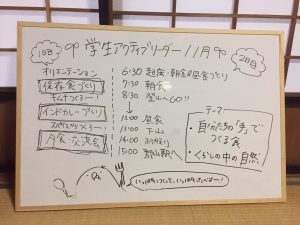 1日目
学生アクティブリーダー 11月
2日目
オリエンテーション
保存食づくり
キムチつくろー!
インドカレーづくり
スパイスからつくろー!
夕食・交流会
6:30 起床・朝食&昼食づくり
7:30 朝食
8:30 登山へGO!!
12:00 昼食
13:00 下山
14:00 ふりかえり
15:00 郡山駅へ
テーマ
・自分たちの「手」で
つくる食
・くらしの中の自然